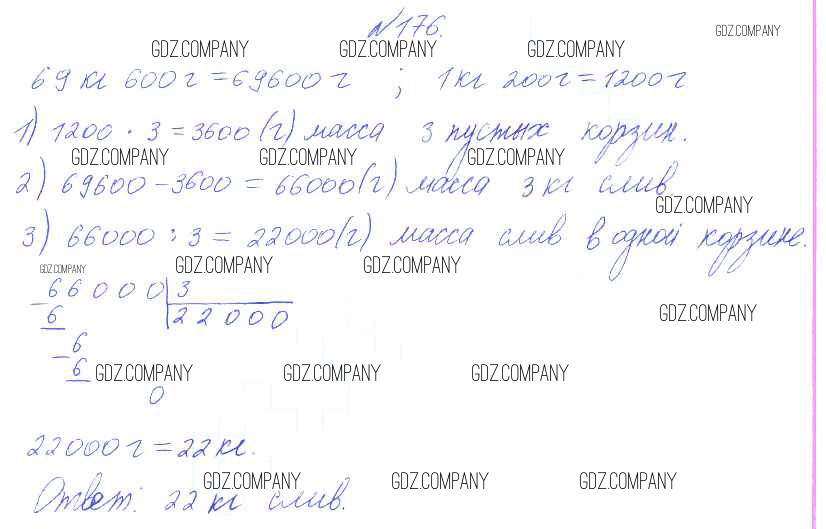 №176.
GDZ.COMPANY
GDZ.COMPANY GDZ.COMPANY GDZ.COMPANY
69 кг 600 г = 69600 г ; 1 кг 200 г = 1200 г
1) 1200 · 3 = 3600 (г) масса 3 пустых корзин.
GDZ.COMPANY GDZ.COMPANY GDZ.COMPANY
2) 69600 – 3600 = 66000 (г) масса 3 кг слив
GDZ.COMPANY
3) 66000 : 3 = 22000 (г) масса слив в одной корзине.
GDZ.COMPANY GDZ.COMPANY GDZ.COMPANY
– 66000 | 3
6 | 22000
GDZ.COMPANY
– 6
6
GDZ.COMPANY GDZ.COMPANY GDZ.COMPANY
0
22000 г = 22 кг.
GDZ.COMPANY GDZ.COMPANY GDZ.COMPANY
Ответ: 22 кг слив.